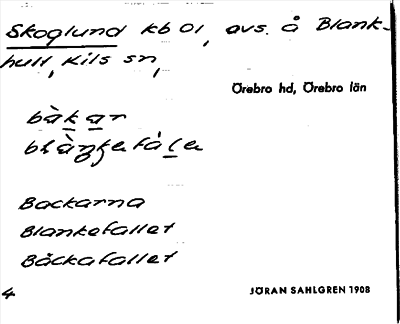 Skoglund kb 01, avs. å Blank-
hull, Kils sn,
Örebro hd, Örebro län
bàkar
blàŋkefàle
Backarna
Blankefallet
Bäckafallet
4
JÖRAN SAHLGREN 1908